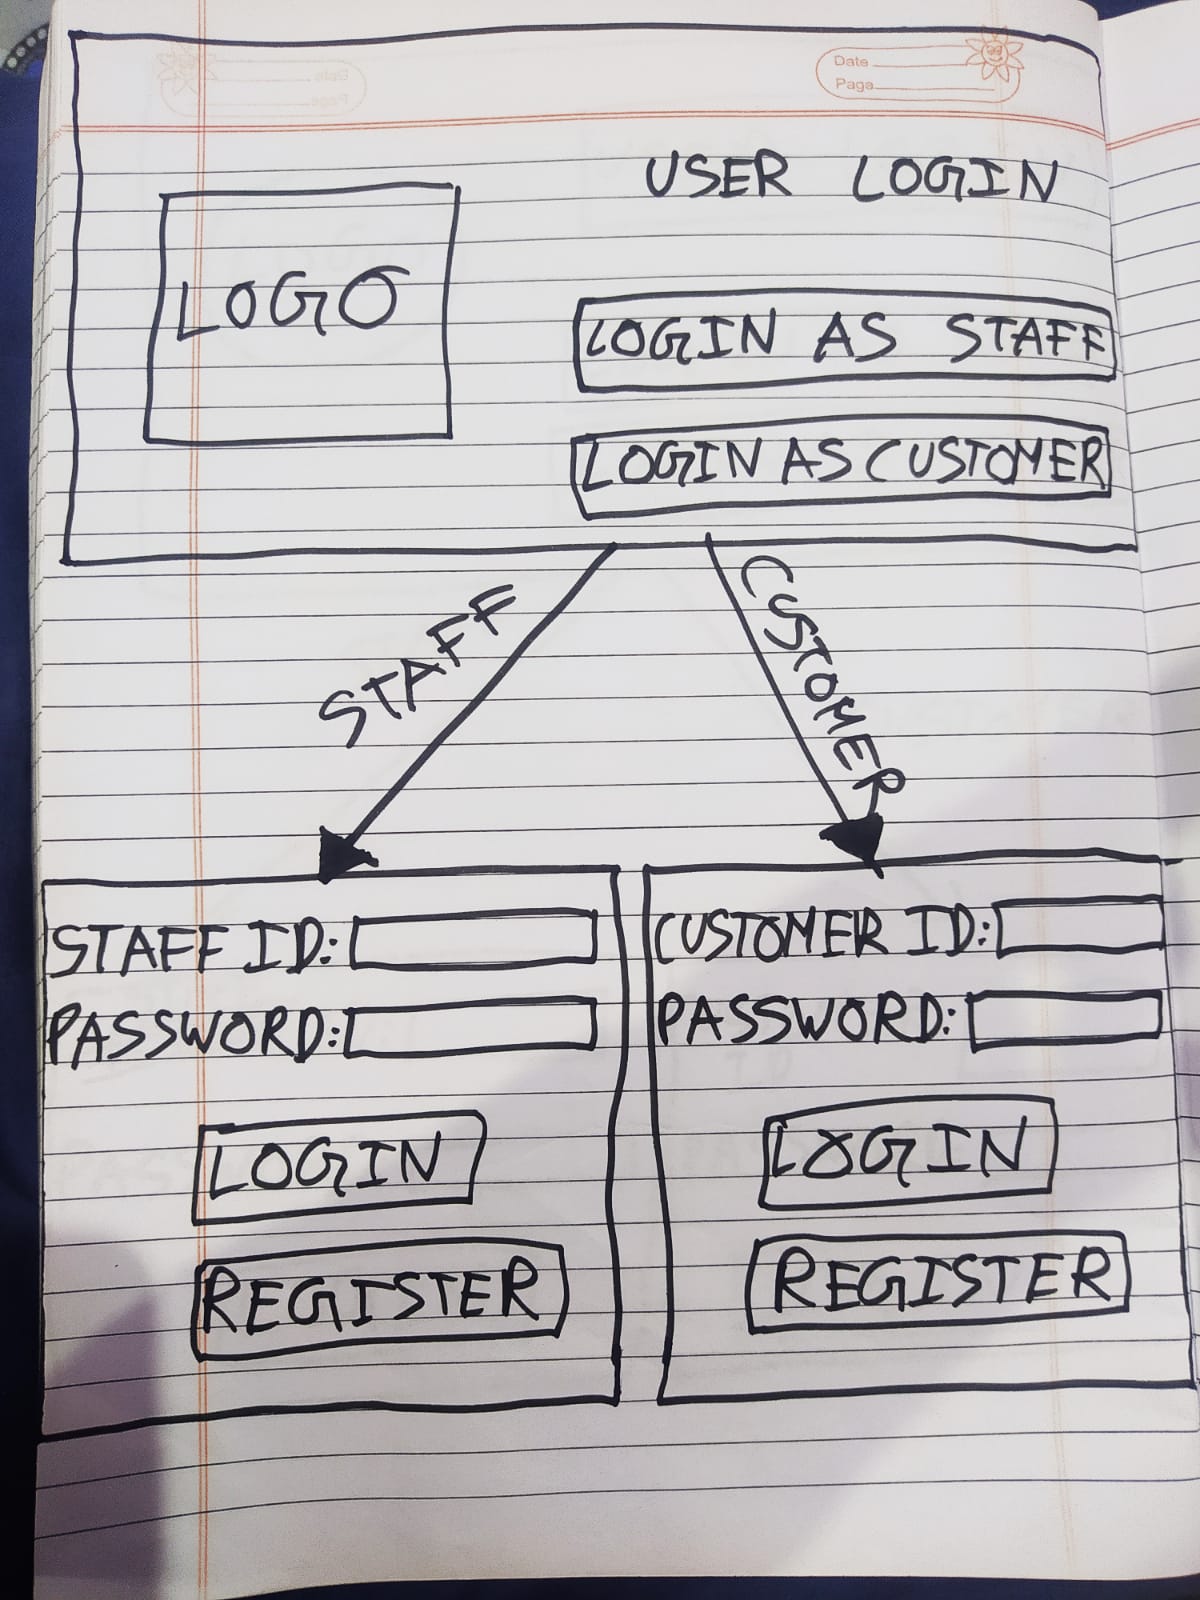 Date
Page
USER LOGIN
LOGO
LOGIN AS STAFF
LOGIN AS CUSTOMER
STAFF
CUSTOMER
STAFF ID:
PASSWORD:
LOGIN
REGISTER
CUSTOMER ID:
PASSWORD:
LOGIN
REGISTER